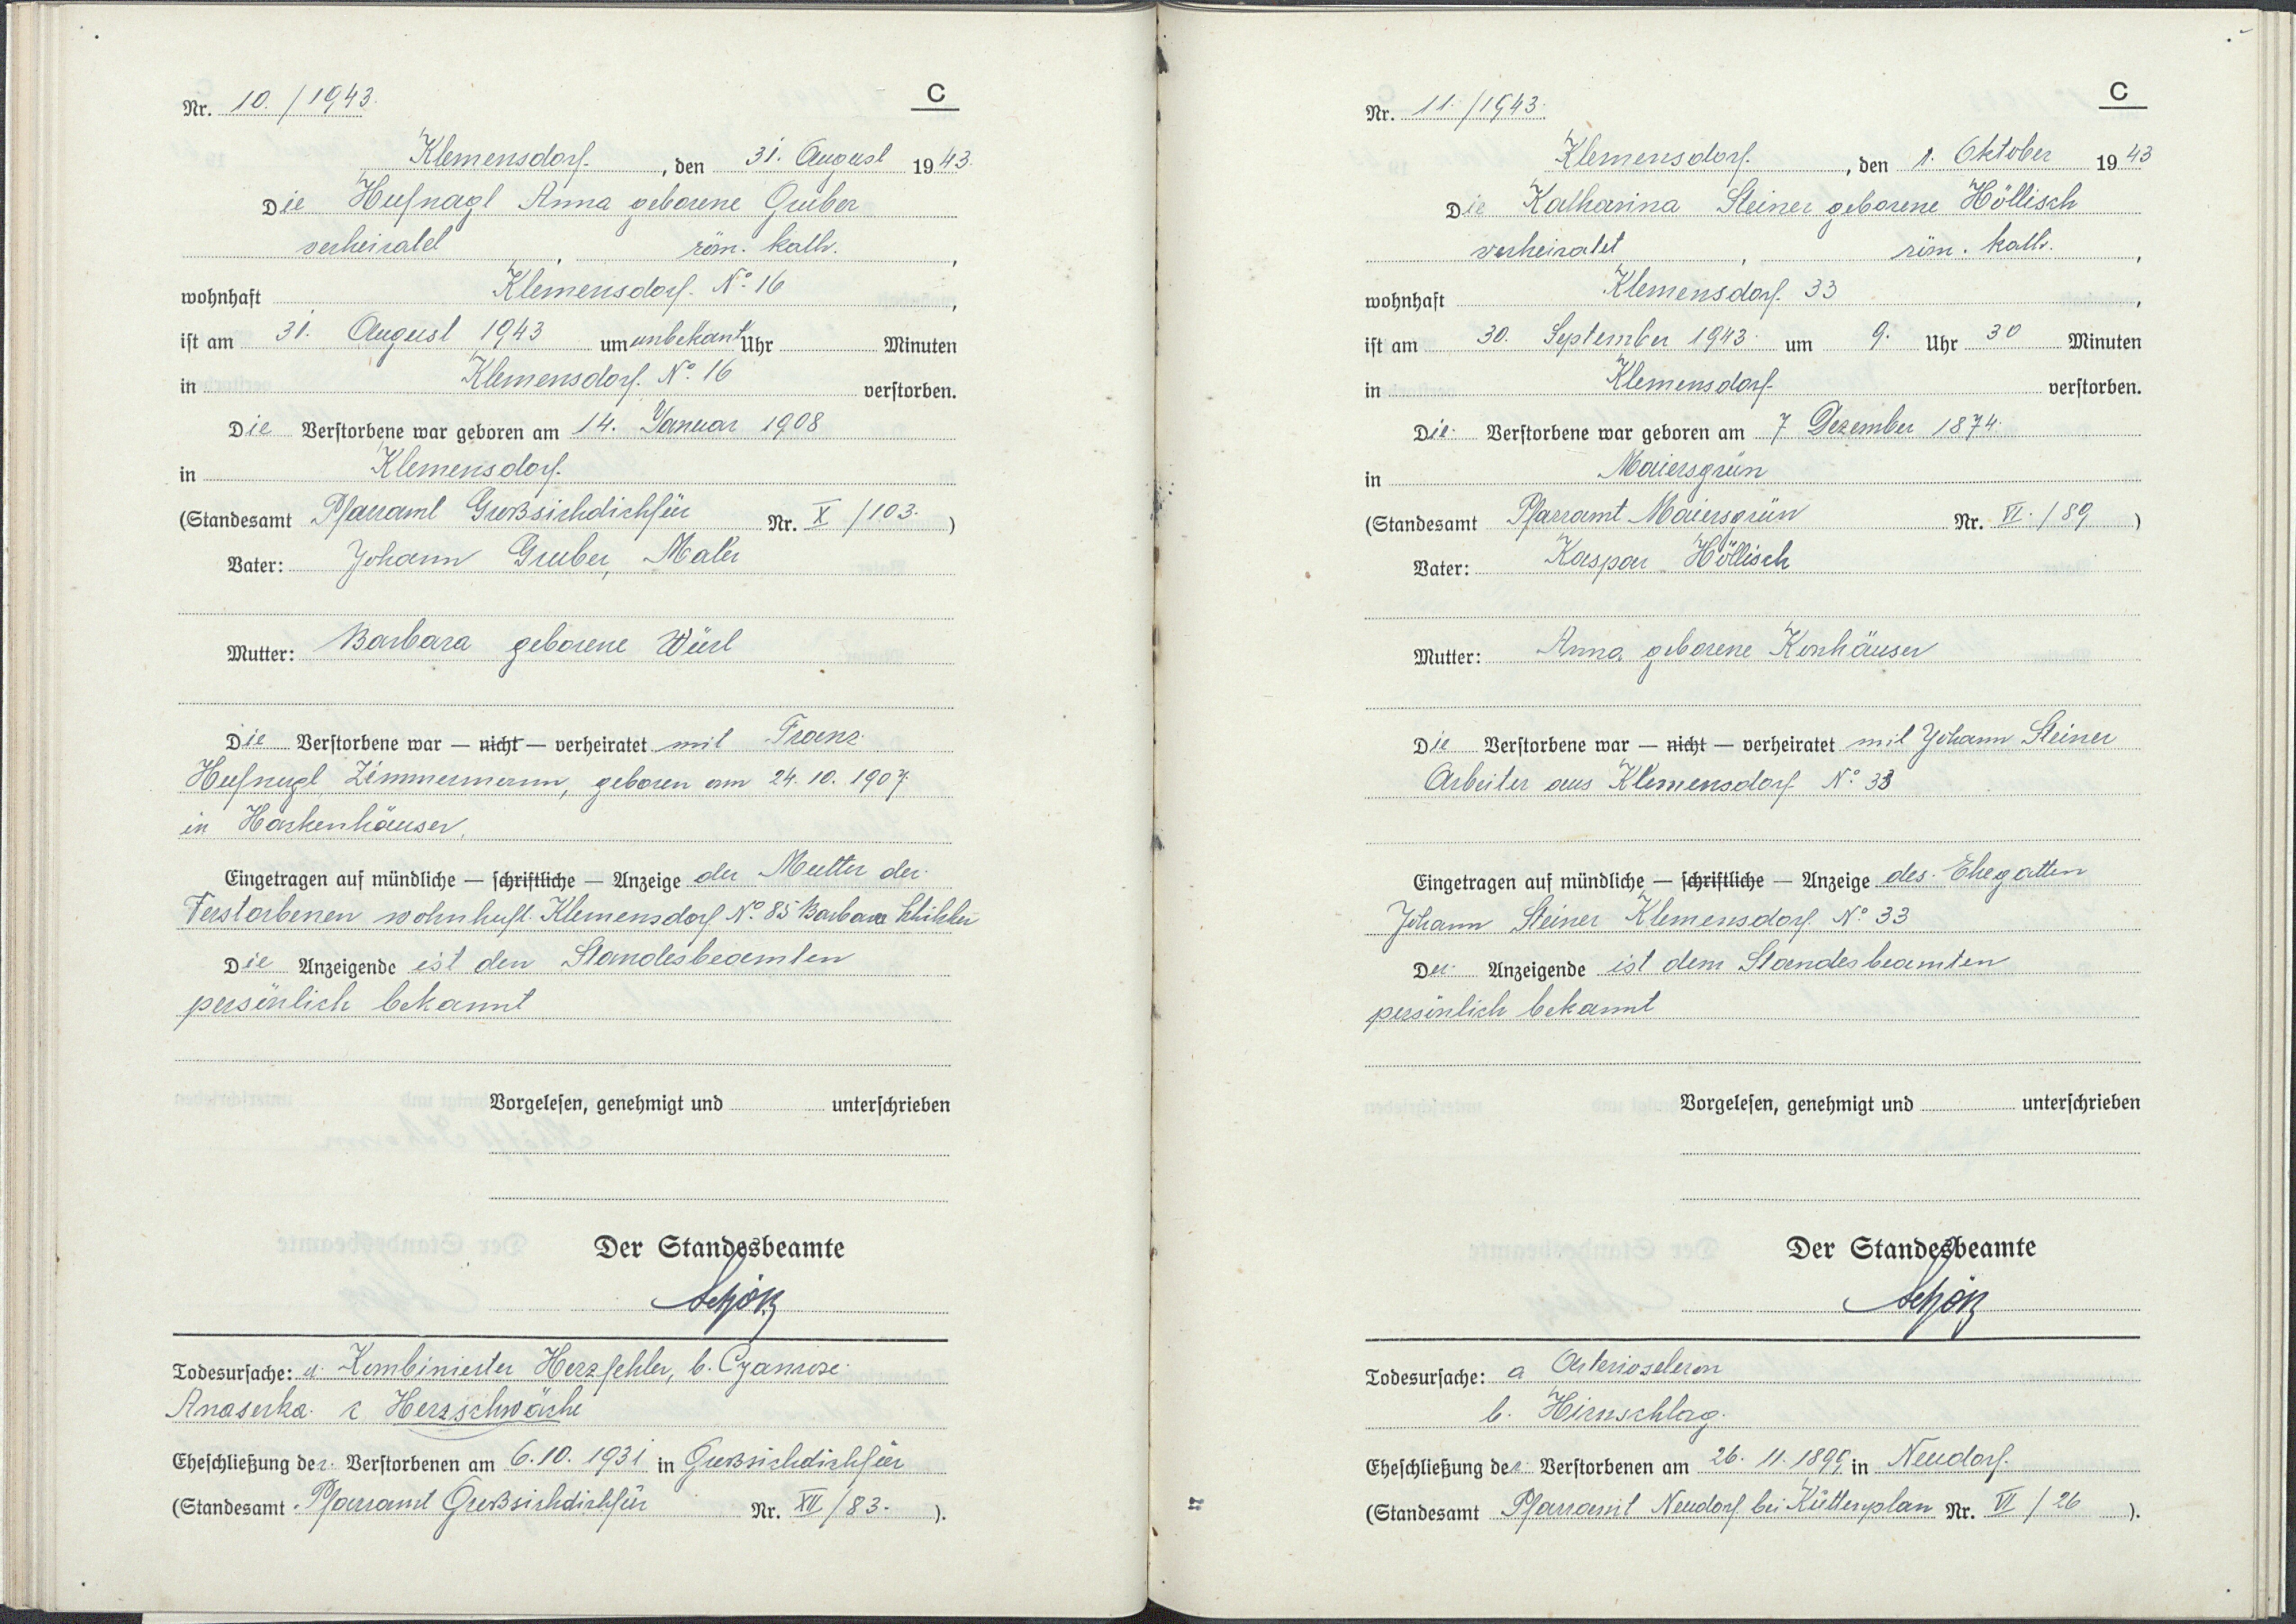 Nr. 10. / 1943.
C
Klemensdorf. , den 31. August 1943.
Die Hufnagl Anna geborene Gruber
verheiratet , röm. kath. ,
wohnhaft Klemensdorf. No. 16 ,
ist am 31. August 1943 um unbekant Uhr Minuten
in Klemensdorf. No. 16 verstorben.
Die Verstorbene war geboren am 14. Januar 1908
in Klemensdorf.
(Standesamt Pfarramt Großsichdichfür Nr. X /103. )
Vater: Johann Gruber, Maler
Mutter: Barbara geborene Würl
Die Verstorbene war — nicht — verheiratet mit Franz
Hufnagl, Zimmermann, geboren am 24. 10. 1907.
in Hackenhäuser.
Eingetragen auf mündliche — schriftliche — Anzeige der Mutter der
Verstorbenen wohnhaft. Klemensdorf No. 85 Barbara
Die Anzeigende ist den Standesbeamten
persönlich bekannt
Vorgelesen, genehmigt und unterschrieben
Der Standesbeamte
Todesursache: a. Kombinierter Herzfehler, b. Cyanose
Anaserka. c Herzschwäche
Eheschließung der. Verstorbenen am 6. 10. 1931 in Großsichdichfür
(Standesamt Pfarramt Großsichdichfür Nr. XII / 83. ).
Nr. 11. / 1943.
C
Klemensdorf. , den 1. Oktober 1943
Die Katharina Steiner geborene Höllisch
verheiratet , röm. kath. ,
wohnhaft Klemensdorf. 33 ,
ist am 30. September 1943. um 9. Uhr 30 Minuten
in Klemensdorf. verstorben.
Die Verstorbene war geboren am 7 Dezember 1874.
in Maiersgrün
(Standesamt Pfarramt Maiersgrün Nr. VI. / 89 )
Vater: Kaspar Höllisch
Mutter: Anna geborene Konhäuser
Die Verstorbene war — nicht — verheiratet mit Johann Steiner
Arbeiter aus Klemensdorf No. 33
Eingetragen auf mündliche — schriftliche — Anzeige des Ehegatten
Johann Steiner Klemensdorf. No. 33
Der Anzeigende ist dem Standesbeamten
persönlich bekannt
Vorgelesen, genehmigt und unterschrieben
Der Standesbeamte
Todesursache: a Arterioscleron
b. Hirnschlag.
Eheschließung der Verstorbenen am 26. 11. 1899. in Neudorf.
(Standesamt Pfarramt Neudorf bei Kuttenplan Nr. VI / 26 ).